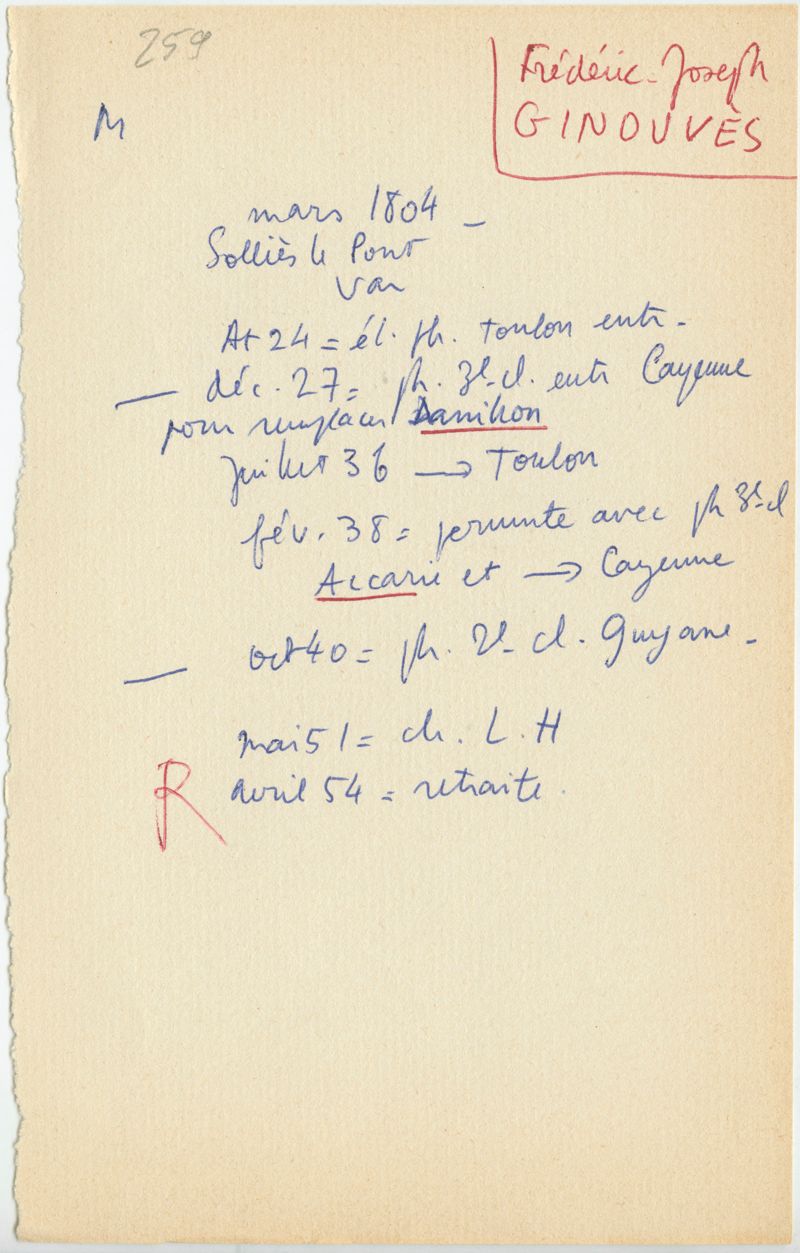 259
Frédéric-Joseph
GINOUVÈS
M
mars 1804 -
Solliès le Pont
Var
At 24 = él. ph. Toulon entr -
— déc. 27 = ph. 3e cl. entr Cayenne
pour remplacer
juillet 36 → Toulon
fév. 38 = permute avec ph 3e cl
Accarie et → Cayenne
— oct 40 = ph. 2e cl. Guyane -
mai 51 = ch. L. H
R avril 54 = retraite.